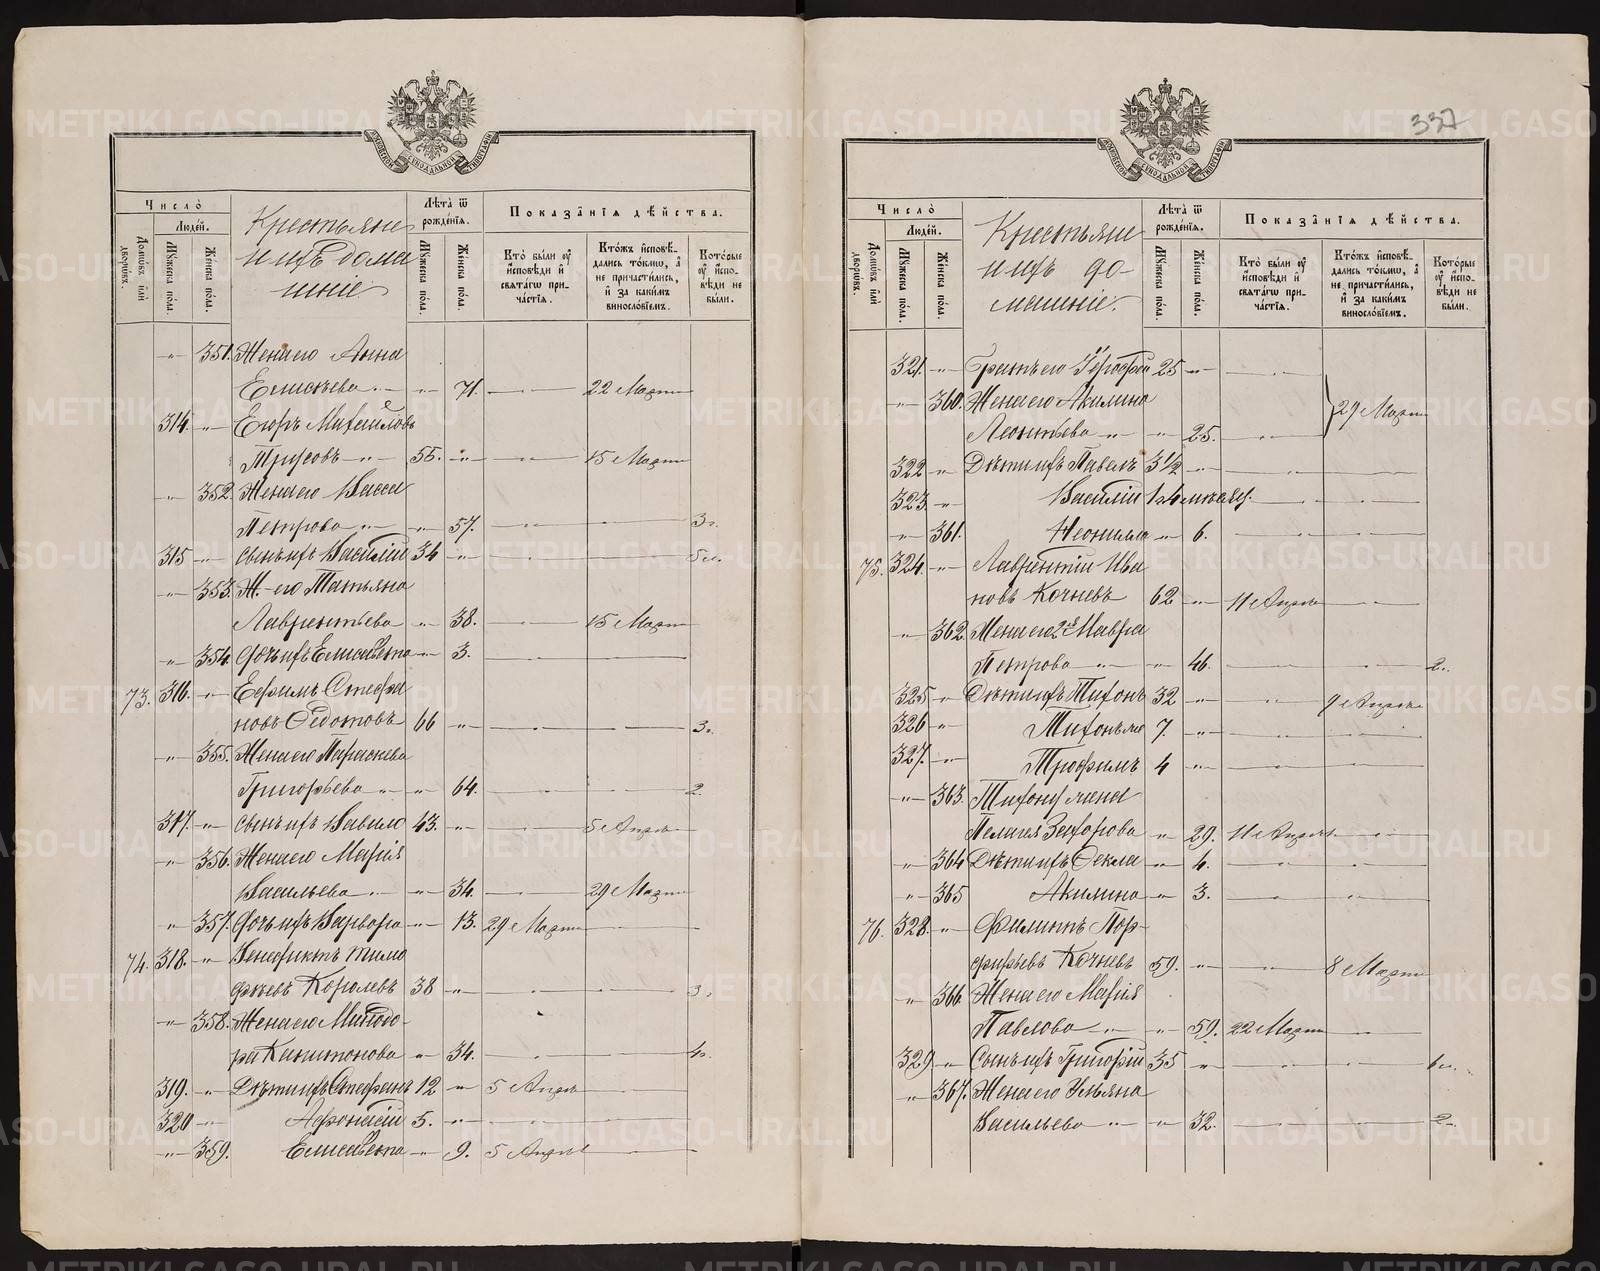 337
Число̀
Людéй.
Домѡ́въ и҆лѝ дворѡ́въ.
Мꙋ́жеска по́ла.
Же́нска по́ла.
Крестьяне
и ихъ дома
шніе
Лѣ́та ѿ рожде́нїѧ.
Мꙋ́жеска по́ла.
Же́нска по́ла.
Показа̑нїѧ дѣ́йства.
Кто̀ бы́ли ᲂу҆ и҆́сповѣди и҆ свѧта́гѡ при-ча́стїѧ.
Кто́жъ и҆сповѣ́-дались то́кмѡ, а҆ не причасти́лись, и҆ за каки́мъ винослѡ́вїемъ.
Кото́рые ᲂу҆ и҆́спо-вѣди не бы́ли.
-"- 351. Жена его Анна
Елисѣева -"- -"- 71. 22 Марта
314. -"- Егоръ Михеилов
Трусовъ -"- 55. -"- 15 Марта
-"- 352. Жена его Васса
Петрова -"- -"- 57. 3г.
315 -"- Сынъ ихъ Василій 34 -"- 5 л.
-"- 353. Ж. его Татьяна
Лаврентьева -"- 38. 15 Марта
-"- 354. Дочь ихъ Елисавета -"- 3.
73. 316. -"- Ефимъ Стефа
новъ Ѳедотовъ 66 -"- 3г.
-"- 355. Жена его Параскева
Григорьева -"- -"- 64. 2.
317. -"- Сынъ ихъ Вавило 43. -"- 5 Апрѣля
-"- 356. Жена его Марія
Васильева -"- -"- 34. 29 Марта
-"- 357. Дочь ихъ Варвара -"- 13. 29 Марта
74. 318. -"- Венедиктъ Тимо
феевъ Королевъ 38 -"- 3г.
-"- 358. Жена его Минодо-
ра Капитонова -"- 34. 4г.
319. -"- Дѣти ихъ Стефанъ 12 -"- 5 Апрѣл
320 -"- Афонасій 5. -"-
-"- 359. Елисавета -"- 9. 5 Апрѣл
Число̀
Людéй.
Домѡ́въ и҆лѝ дворѡ́въ.
Мꙋ́жеска по́ла.
Же́нска по́ла.
Крестьяне
и ихъ до-
машніе.
Лѣ́та ѿ рожде́нїѧ.
Мꙋ́жеска по́ла.
Же́нска по́ла.
Показа̑нїѧ дѣ́йства.
Кто̀ бы́ли ᲂу҆ и҆́сповѣди и҆ свѧта́гѡ при-ча́стїѧ.
Кто́жъ и҆сповѣ́-дались то́кмѡ, а҆ не причасти́лись, и҆ за каки́мъ винослѡ́вїемъ.
Кото́рые ᲂу҆ и҆́спо-вѣди не бы́ли.
321. -"- Братъ его Ерофей 25 -"-
-"- 360. Жена его Акилина 29 Марта
Леонтьева -"- -"- 25.
322 -"- Дѣти ихъ Павелъ 3½ -"-
323 -"- Василій
-"- 361. Неонилла -"- 6.
75. 324. -"- Лаврентій Ива
новъ Кочневъ 62 -"- 11 Апрѣля
-"- 362. Жена его 2я Мавра
Петрова -"- -"- 46. 2.
325 -"- Дѣти ихъ Тихонъ 32 -"- 9 Апрѣля
326 -"- Тихонъ же 7. -"-
327. -"- Трофимъ 4 -"-
-"- 363. Тихону жена
Пелагія Захарова -"- 29. 11 Апрѣля
-"- 364 Дѣти ихъ Ѳекла -"- 4.
-"- 365 Акилина -"- 3.
76. 328. -"- Филиппъ Пор-
фирьевъ Кочневъ 59. -"- 8 Марта
-"- 366. Жена его Марія
Павлова -"- -"- 59. 22 Марта
329 -"- Сынъ ихъ Григорій 35 -"- 6 л.
-"- 367. Жена его Ульяна
Васильева -"- -"- 32. 2.
METRIKI.GASO-URAL.RU